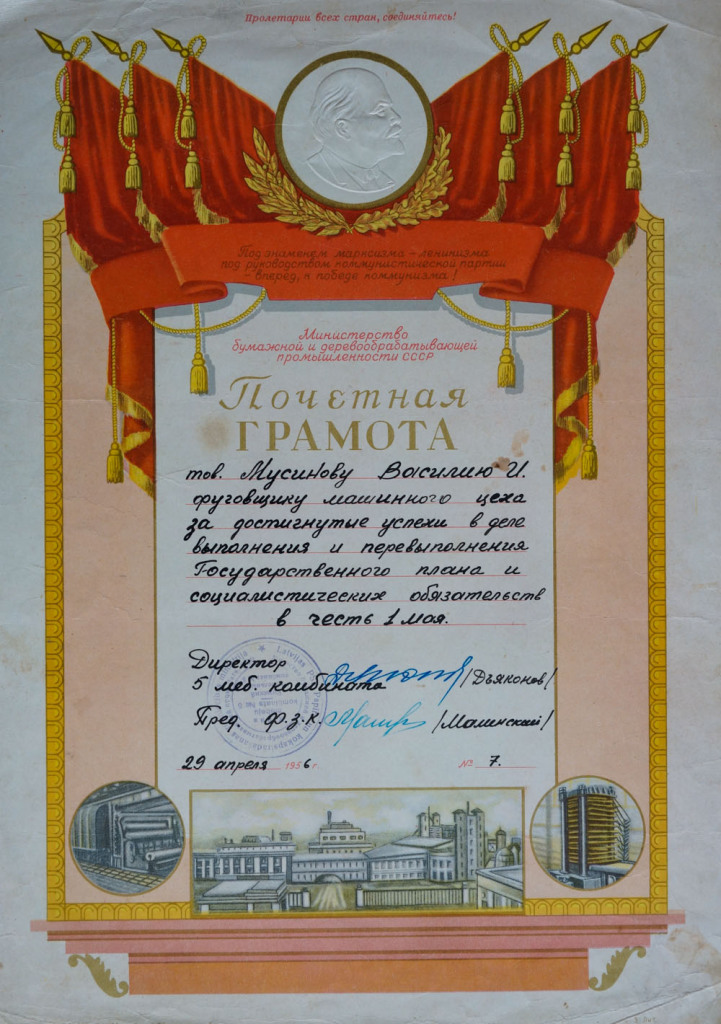 Пролетарии всех стран, соединяйтесь!
Под знаменем марксизма – ленинизма
под руководством коммунистической партии
– вперед, к победе коммунизма!
Министерство
бумажной и деревообрабатывающей
промышленности СССР
Почетная
ГРАМОТА
тов. Мусинову Василию И.
фуговщику машинного цеха
за достигнутые успехи в деле
выполнения и перевыполнения
Государственного плана и
социалистических обязательств
в честь 1 мая.
Директор
5 меб. комбината /Дьяконов/
Пред. ф.з.к. /Малинский/
29 апреля 1956 г. № 7.
Latvijas